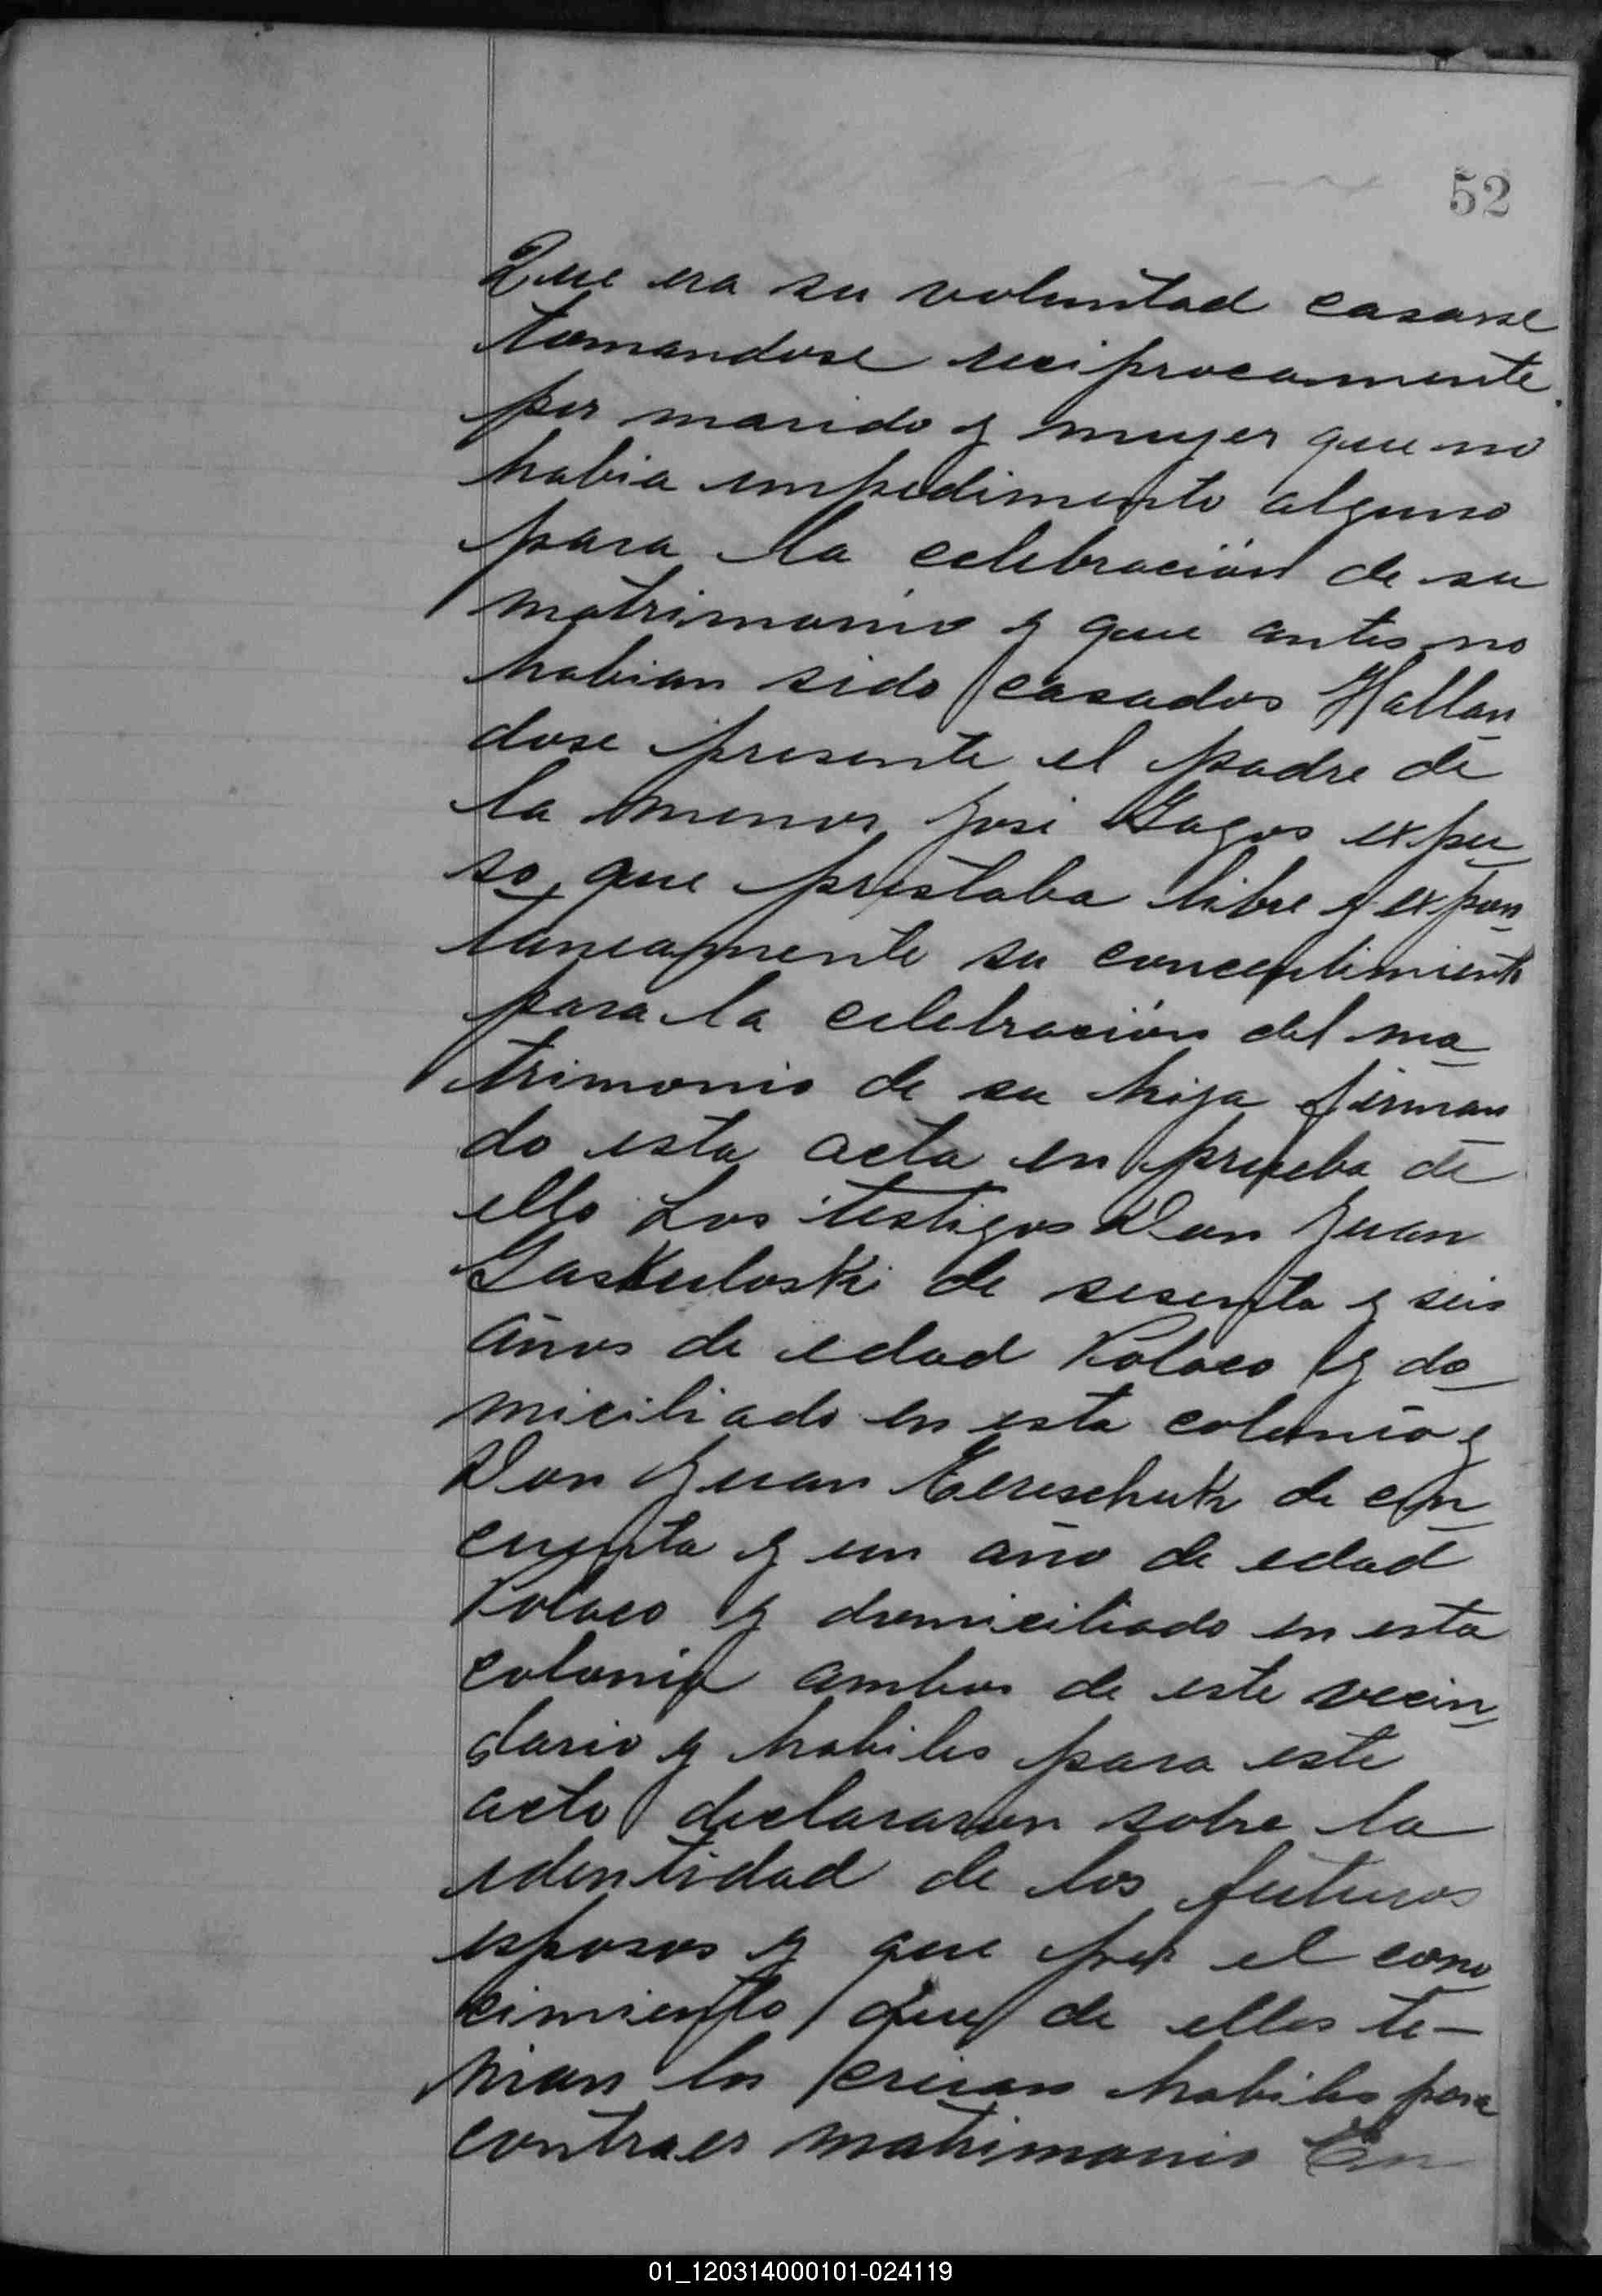 52
Que era su voluntad casarse
tomandose reciprocamente
por marido y mujer que no
habia impedimento alguno
para la celebración de su
matrimonio y que antes no
habian sido casados Hallan
dose presente el padre de
la menor José Gagos expu
so que prestaba libre y expon
taneamente su concentimiento
para la celebración del ma
trimonio de su hija firman
do esta acta en prueba de
ello Los testigos Don Juan
Gaskuloski de sesenta y seis
años de edad Polaco y do
miciliado en esta colonia y
Don Juan Tereschuk de cin
cuenta y un año de edad
Polaco y domiciliado en esta
colonia ambos de este vecin
dario y habiles para este
acto declararon sobre la
identidad de los futuros
esposos y que por el cono
cimiento que de ellos te-
nian los creian habiles para
contraer matrimonio En
01_120314000101-024119